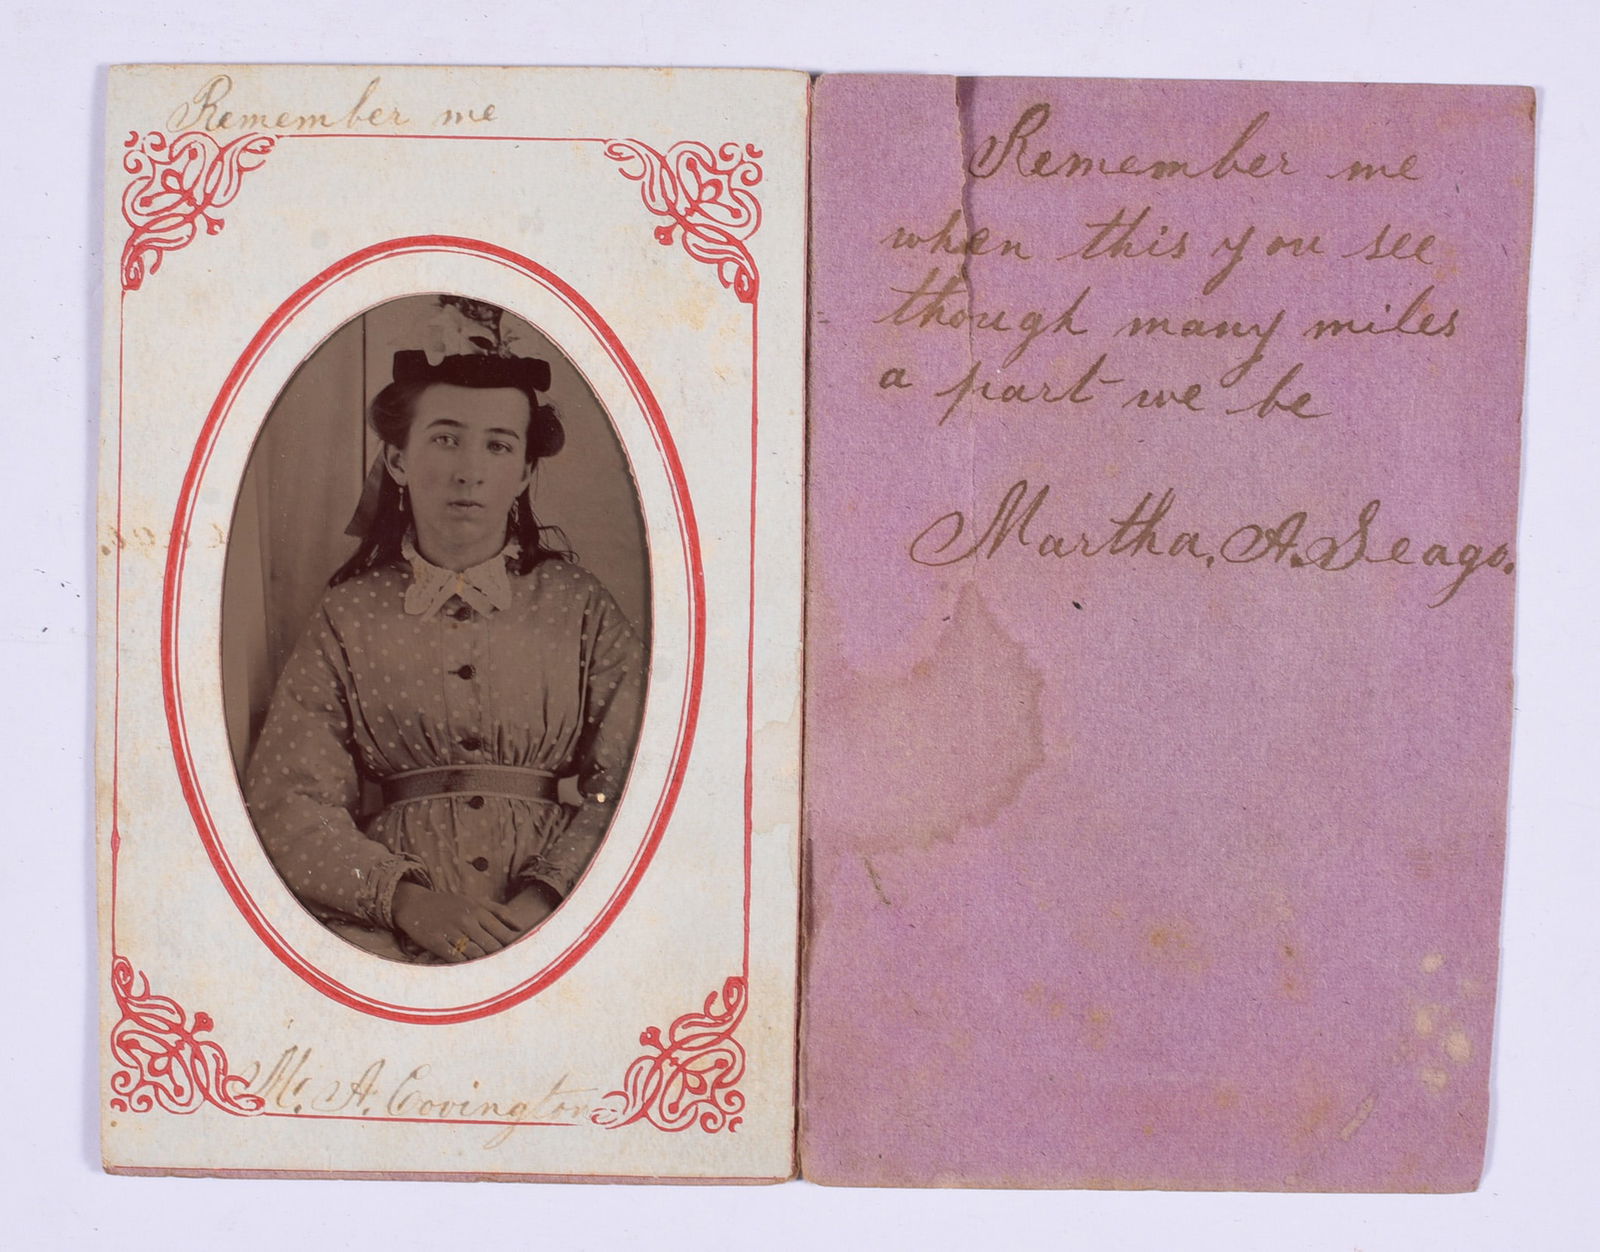 Remember me
M. A. Covington
Remember me
when this you see
though many miles
a part we be
Martha. A. Seago.